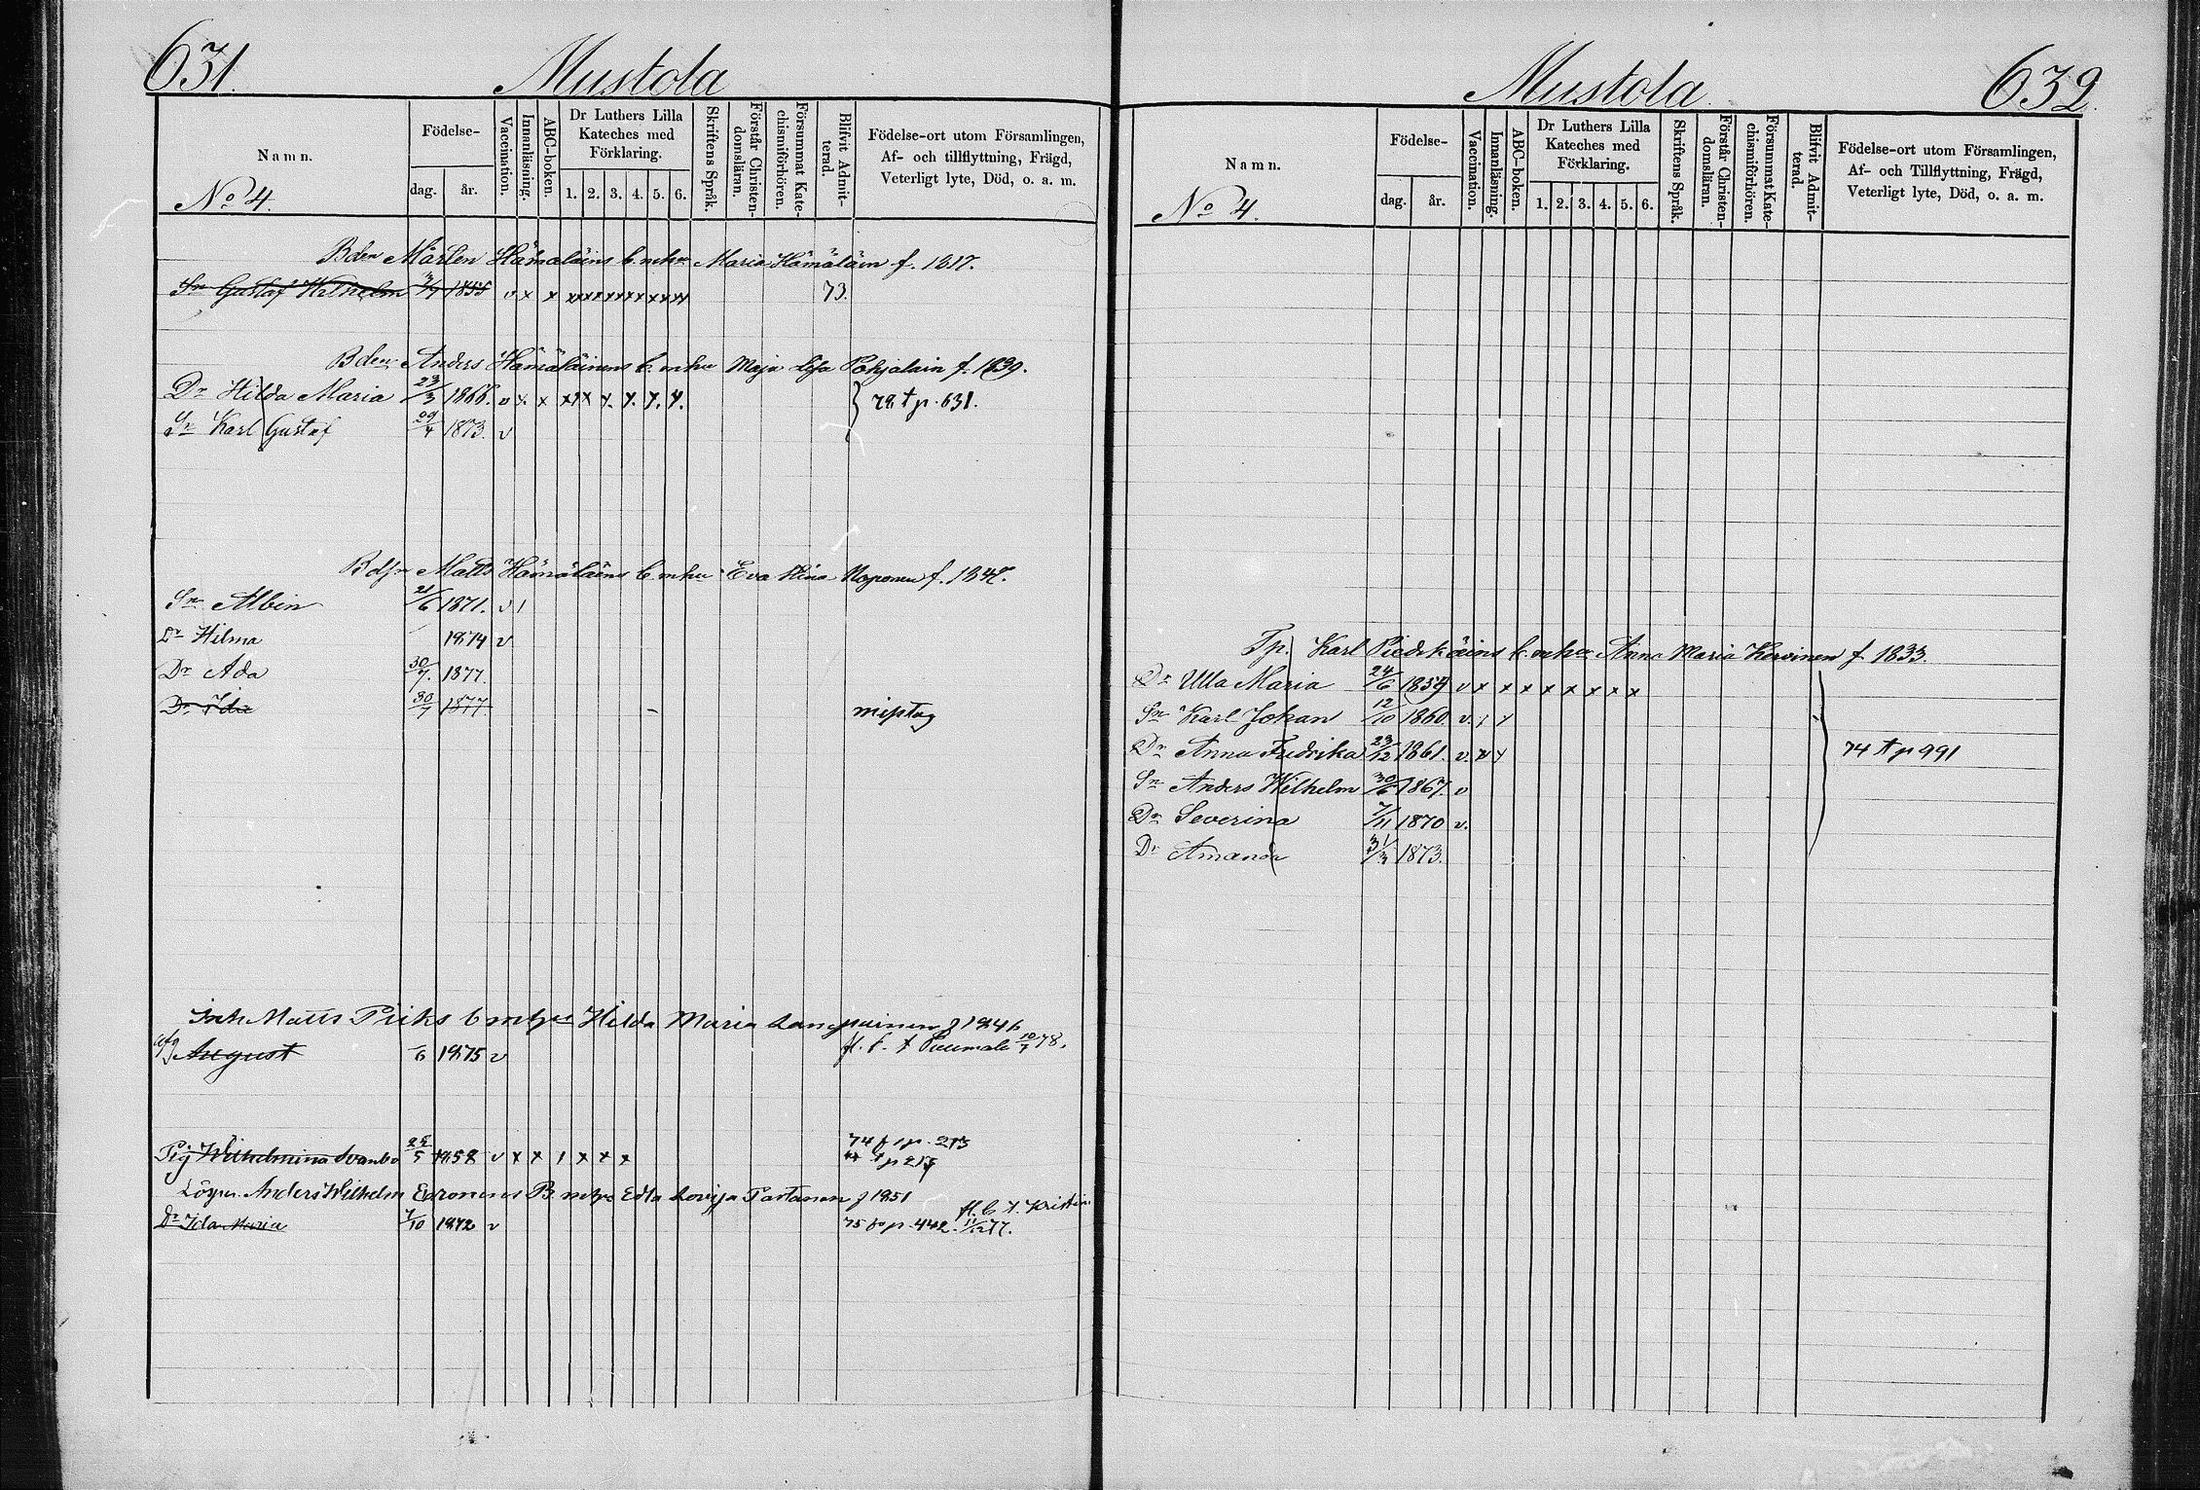 631.
Mustola
Namn.
Födelse-
dag. år.
Vaccination.
Innanläsning.
ABC-boken.
Dr Luthers Lilla Kateches med Förklaring.
1. 2. 3. 4. 5. 6.
Skriftens Språk.
Förstår Christen-domsläran.
Försummat Kate-chismiförhören.
Blifvit Admit-terad.
Födelse-ort utom Församlingen,
Af- och tillflyttning, Frägd,
Veterligt lyte, Död, o. a. m.
No 4.
Bden Mårten Hämäläins b. m hu Maria Hämäläin f. 1817.
Sn Gustaf Wilhelm 1855 v x x 73.
Bden Anders Hämäläinens b. m hu Maja Lisa Pohjalain f. 1839.
Dr Hilda Maria 23/3 1866. v x x 78 t p. 631.
Sn Karl Gustaf 29/4 1873. v
Matts Hämäläins b. m hu Eva Stina
Sn Albin 21/6 1871. v 1
Dr Hilma 1874 v
Dr Ada 30/7. 1877.
Dr Ida 30/7 1877 misstag
Matts Hilda Maria f 1846
August /6 1875 v fl. b. t Puumala 10/7 78.
Pig Wilhelmina 25/5 1858 v x x 1 x x x 74 f p. 213
t p 213
Anders Wilhelm Edla Lovisa Partanen f 1851
Dr Ida Maria 7/10 1872 v 75 fr p. 442. fl. b. t. Kristin 11/12 77.
Mustola.
632.
Namn.
Födelse-
dag. år.
Vaccination.
Innanläsning.
ABC-boken.
Dr Luthers Lilla Kateches med Förklaring.
1. 2. 3. 4. 5. 6.
Skriftens Språk.
Förstår Christen-domsläran.
Försummat Kate-chismiförhören.
Blifvit Admit-terad.
Födelse-ort utom Församlingen,
Af- och Tillflyttning, Frägd,
Veterligt lyte, Död, o. a. m.
No 4.
Tp. Karl b. m hu Anna Maria Kervinen f 1833.
Dr Ulla Maria 24/6 v x x x x x x x x
Sn Karl Johan 12/10 1860. v.
Dr Anna Fredrika 23/12 1861. v. 74 t p 991
Sn Anders Wilhelm 30/6 1867. v
Dr Severina 7/11 1870 v.
Dr Amanda 31/3 1873.